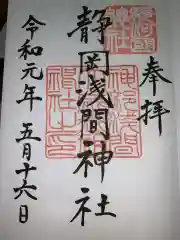 奉拝
静岡浅間神社
令和元年五月十六日